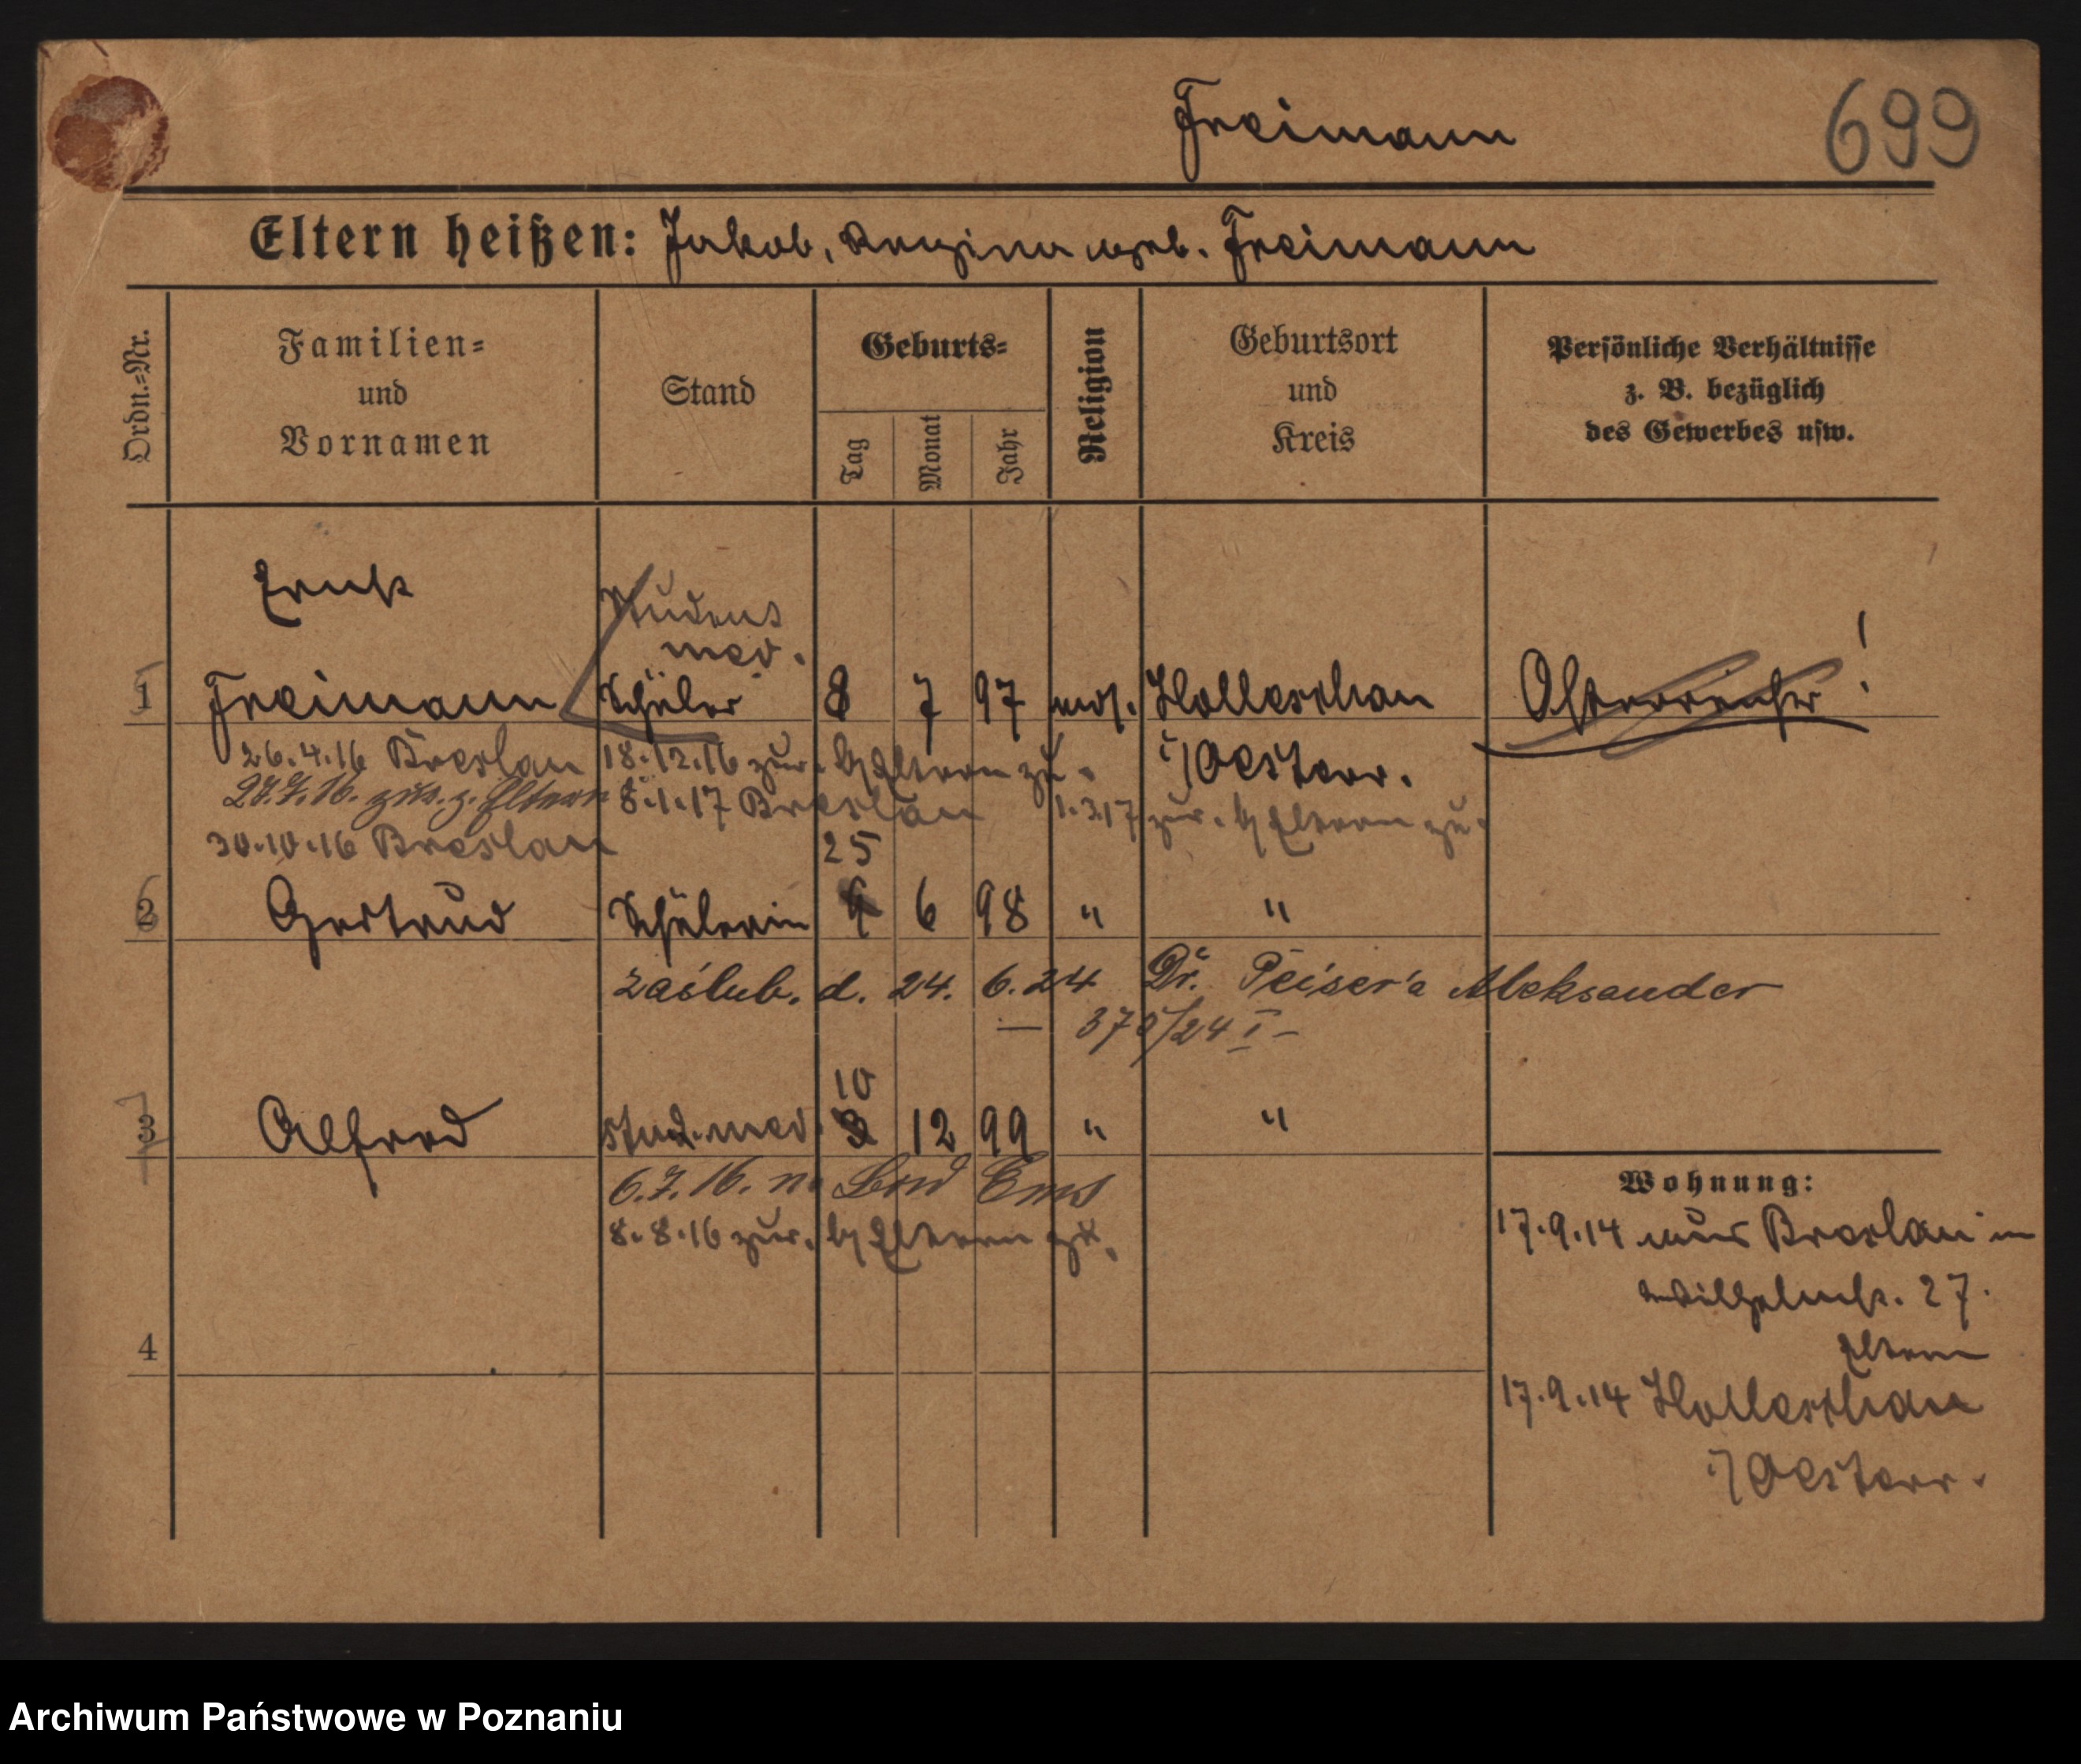 Freimann
699
Eltern heißen: Jakob, Regina geb. Freimann
Ordn.-Nr.
Familien-
und
Vornamen
Stand
Geburts-
Tag
Monat
Jahr
Religion
Geburtsort
und
Kreis
Persönliche Verhältnisse
z. B. bezüglich
des Gewerbes usw.
Ernst
Studens
med.
1 Freimann Schüler 8 7 97 mos. Holleschau Österreicher!
i/Oesterr.
26.4.16 Breslau 18.12.16 zur. b/Eltern zu.
27.7.16. zur. z. Eltern 8.1.17 Breslau 1.3.17 zur. b/Eltern zu.
30.10.16 Breslau
25
2 Gertrud Schülerin 9 6 98 " "
zaślub. d. 24. 6. 24 Dr. Peiser'a Aleksander
— 370/24 I —
10
3 Alfred stud. med. 3 12 99 " "
6.7.16. n. Bad Ems
8.8.16 zur. b/Eltern zu.
4
Wohnung:
17.9.14 aus Breslau in
Wilhelmstr. 27.
Eltern
17.9.14 Holleschau
i/Oesterr.
Archiwum Państwowe w Poznaniu